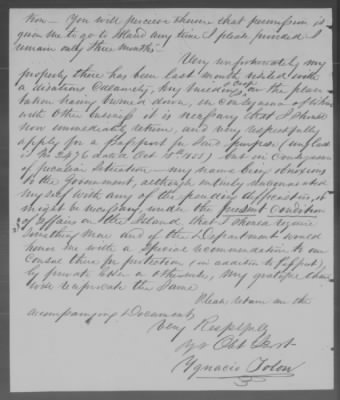 tion - You will perceive therein that permission is
given me to go to Island any time I please provided I
remain only three months -
Very unfortunately my
property there has been last month visited with
a disastrous calamity, buildings on the plan-
tation being burned down, in consequence of which
with other causes it is necessary that I should
now immediately return, and very respectfully
apply for a Passport for said purpose (my last
is No 2476 dated Oct. 18th 1851) but in consequence
of peculiar situation - my name being obnoxious
to the Government, although entirely unconnected
my self with any of the pending differences, it
might be necessary under the present condition
of affairs on the Island, that I should require
something more and if the Department would
honor me with a special recommendation to our
Consul there for protection (in addition to Passport)
by private letter or otherwise, my grateful thanks
will reciprocate the same.
Please return me the
accompanying 2 Documents
Very Respectfully
Yr Obt Servt
Ygnacio Tolon